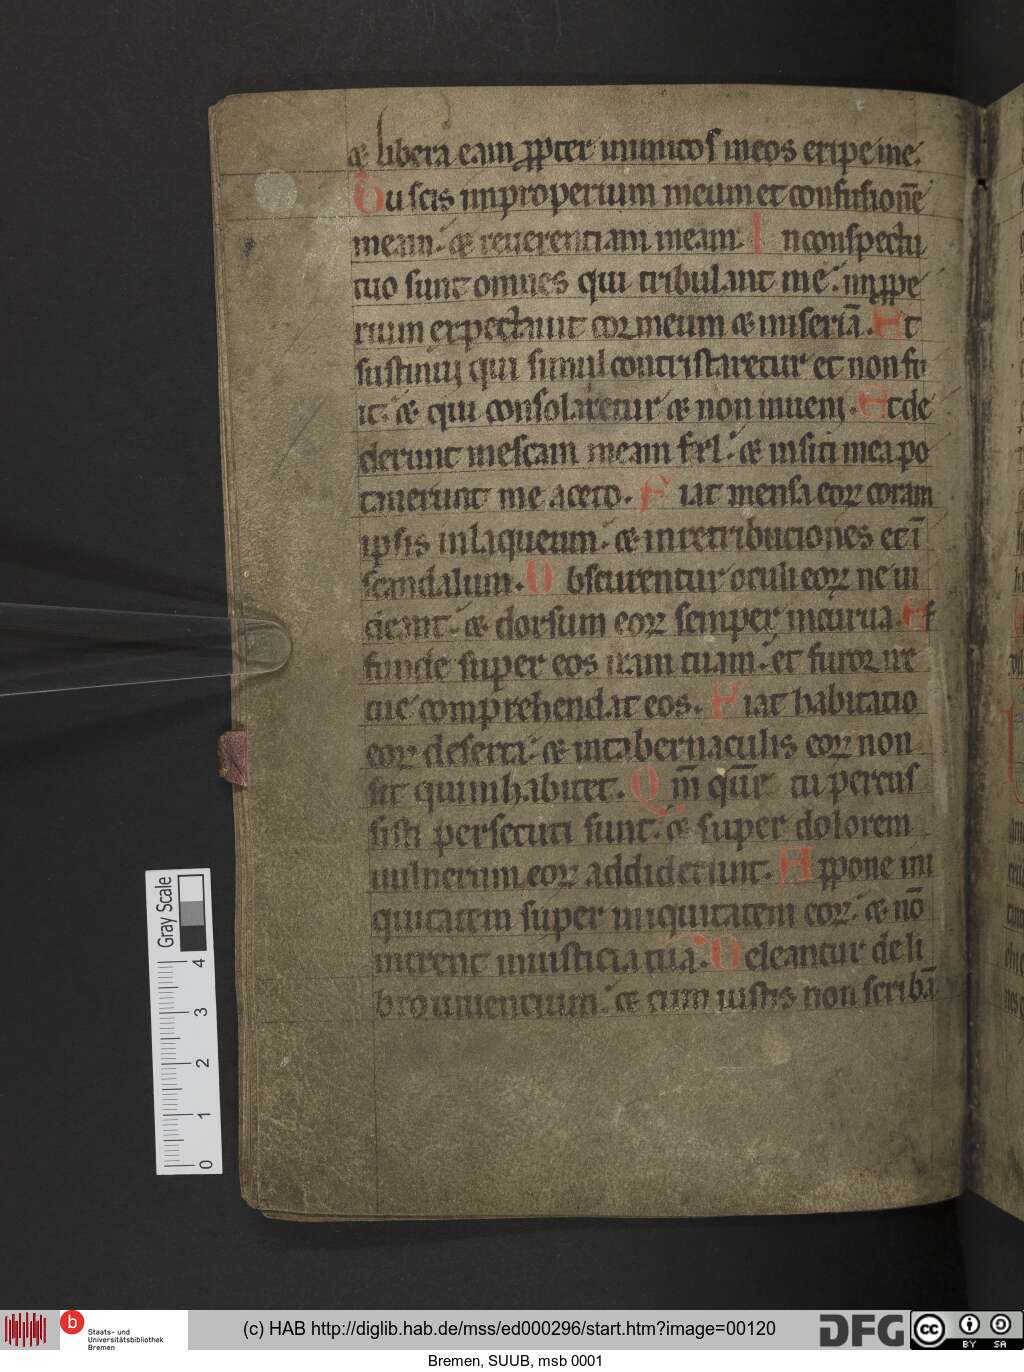 & libera eam ꝓpter inimicos meos eripe me.
Tu scis improperium meum et confusionē
meam. & reuerentiam meam. In conspectu
tuo sunt omnes qui tribulant me. inꝓpe
rium expectauit cor meum & miseriā. Et
sustinui qui simul contristaretur et non fu
it. & qui consolaretur & non inueni. Et de
derunt in escam meam fel. & in siti mea po
tauerunt me aceto. Fiat mensa eoꝝ coram
ipsis in laqueum. & in retribuciones et ī
scandalum. Obscurentur oculi eoꝝ ne ui
deant. & dorsum eoꝝ semper incurua. Ef
funde super eos iram tuam. et furor ire
tue comprehendat eos. Fiat habitatio
eoꝝ deserta. & in tabernaculis eoꝝ non
sit qui inhabitet. Qm̄ quē tu percus
sisti persecuti sunt. & super dolorem
uulnerum eoꝝ addiderunt. Appone ini
quitatem super iniquitatem eoꝝ. & nō
intrent in iusticia tua. Deleantur de li
bro uiuentium. & cum iustis non scribā
Gray Scale
4 3 2 1 0
b Staats- und
Universitätsbibliothek
Bremen
(c) HAB http://diglib.hab.de/mss/ed000296/start.htm?image=00120
DFG
cc BY SA
Bremen, SUUB, msb 0001